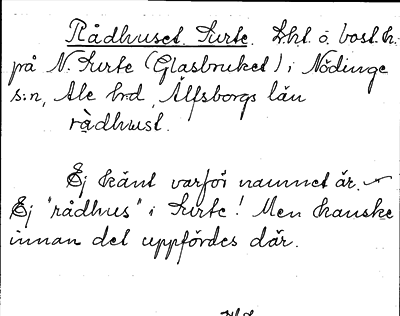 Rådhuset. Surte. Lht. o. bost.h.
på N. Surte (Glasbruket) i Nödinge
s:n, Ale hd, Älfsborgs län
rådhust.
Ej känt varför namnet är.
Ej "rådhus" i Surte! Men kanske
innan det uppfördes där.